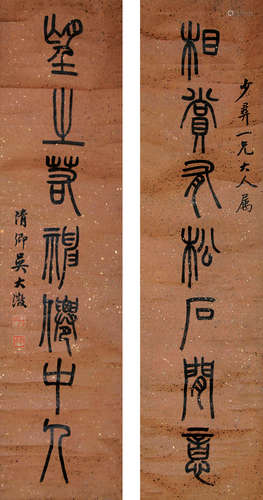 相賞有松石間意
少彝一兄大人属
望之若神僊中人
清卿吳大澂